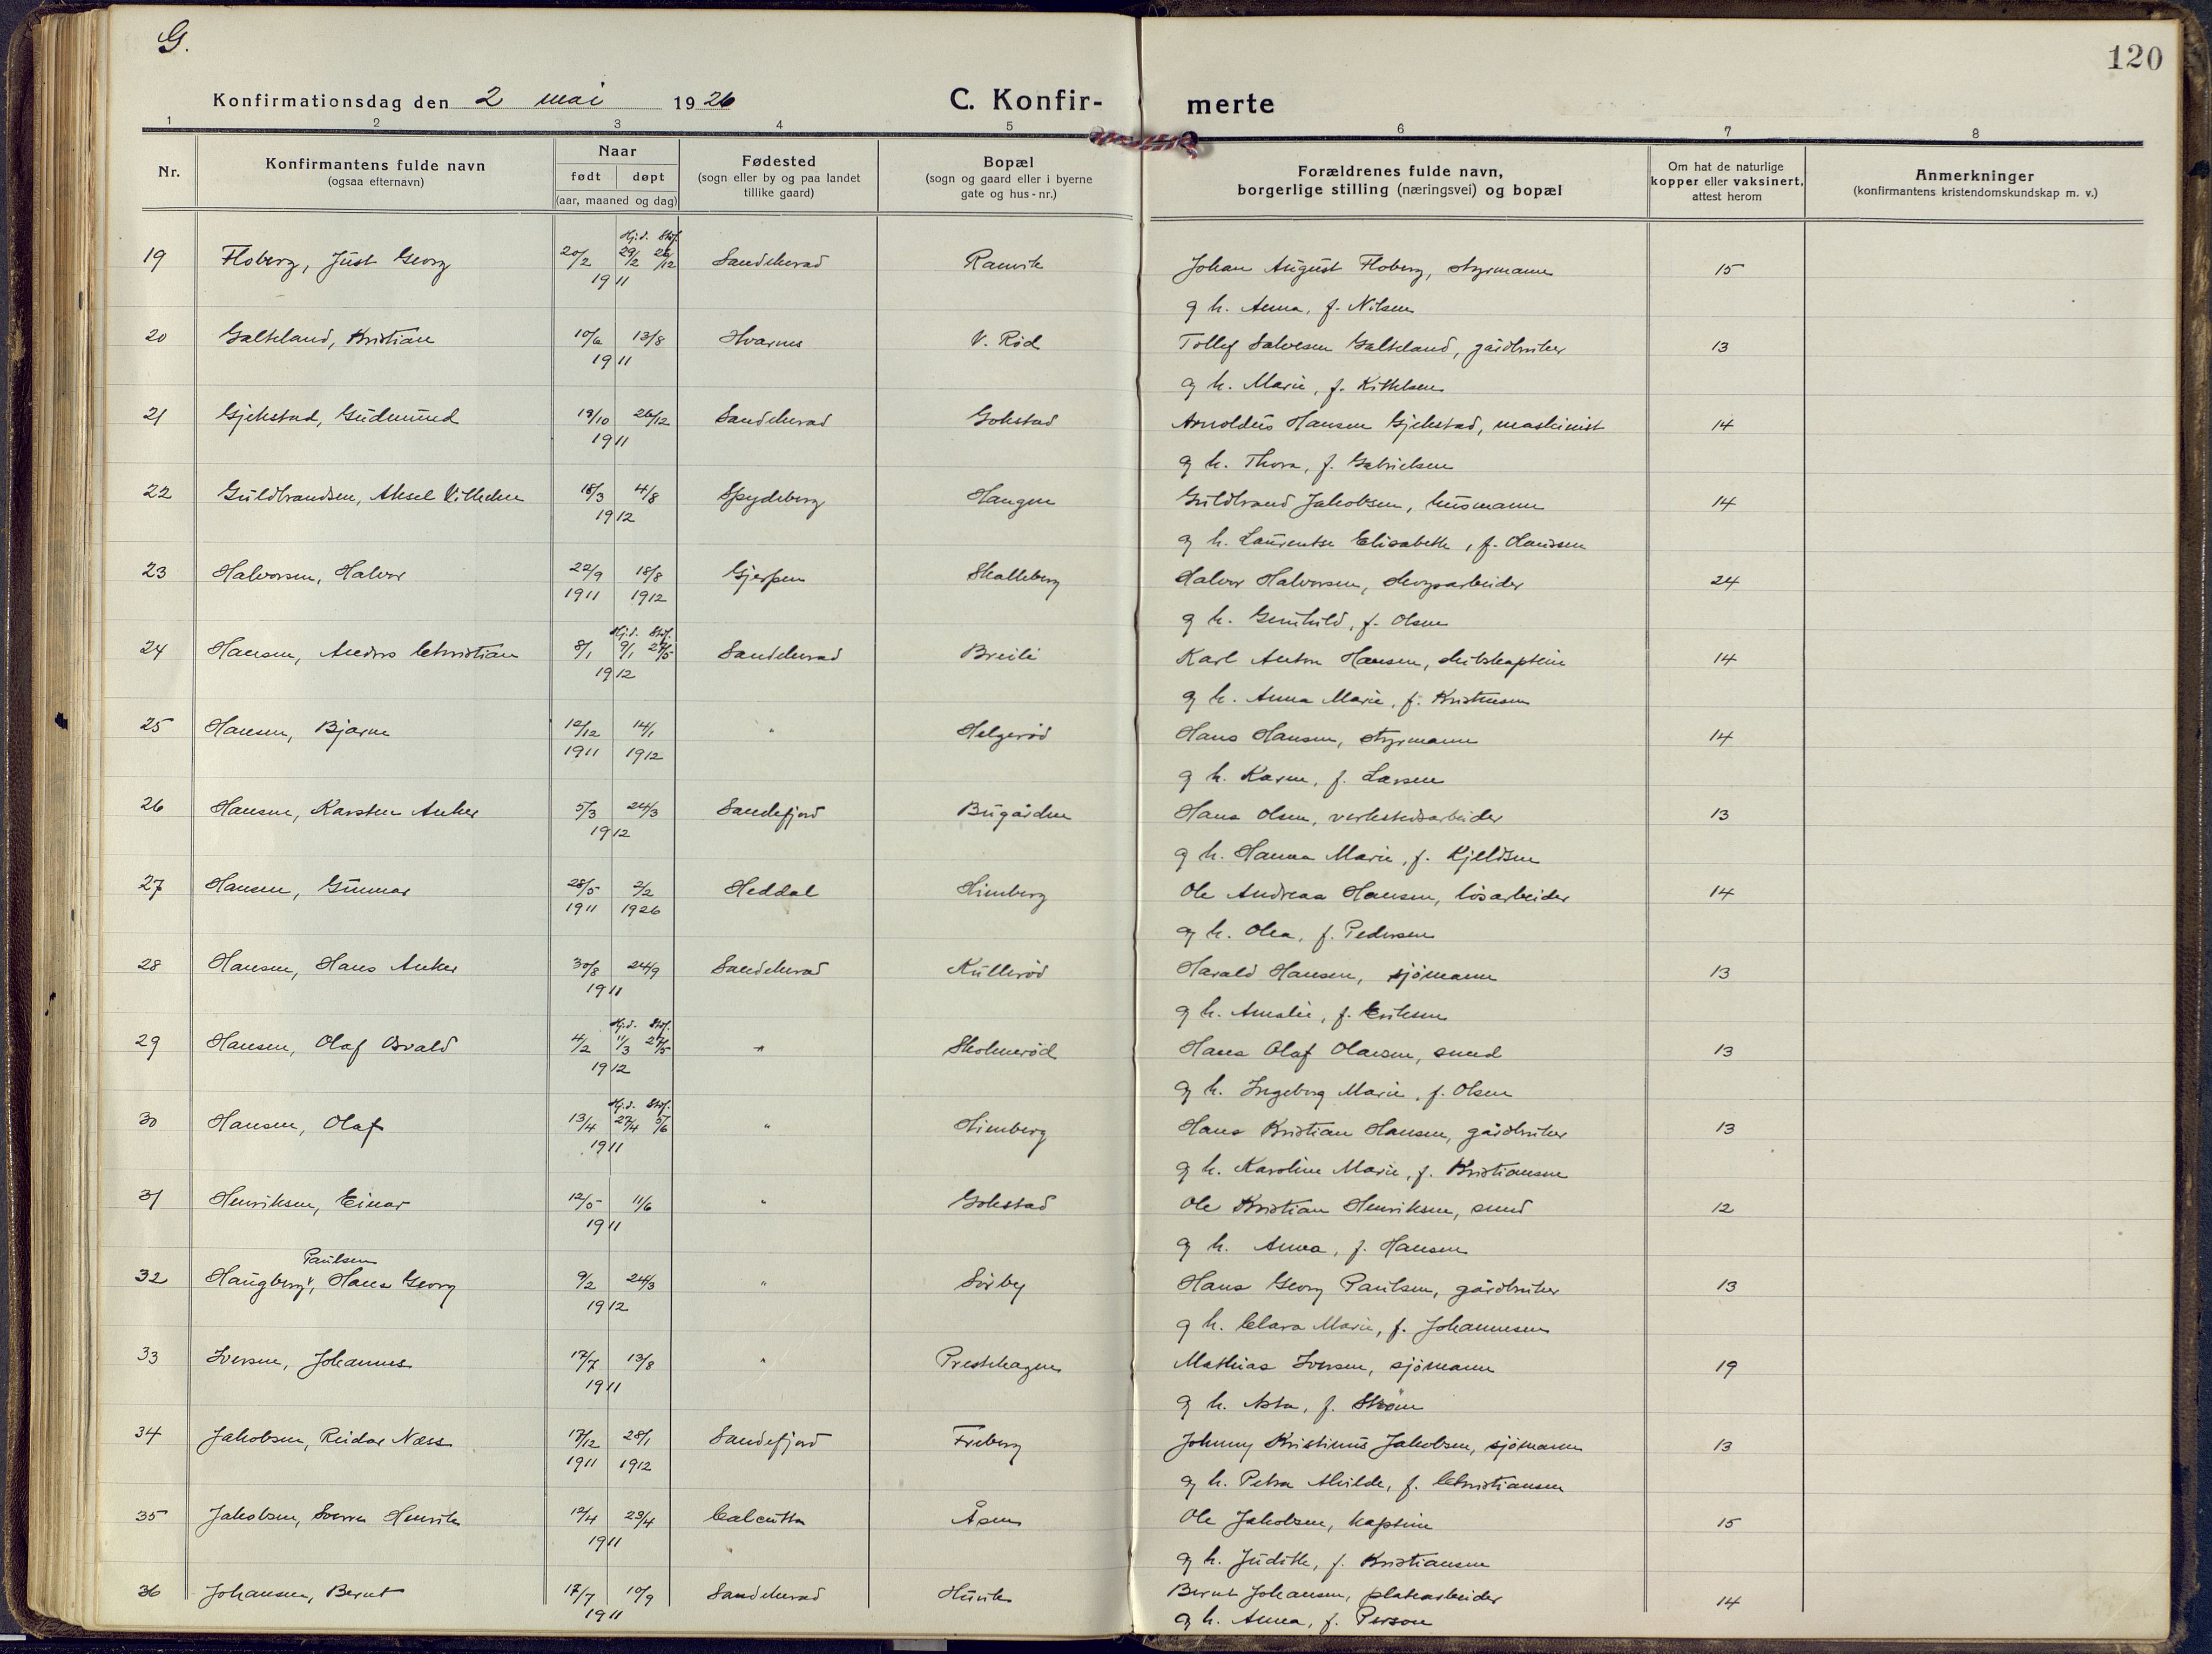 G.
120
Konfirmationsdag den 2 mai 1926
C. Konfir-
merte
1 2 3 4 5 6 7 8
Nr.
Konfirmantens fulde navn
(ogsaa efternavn)
Naar
født døpt
(aar, maaned og dag)
Fødested
(sogn eller by og paa landet
tillike gaard)
Bopæl
(sogn og gaard eller i byerne
gate og hus-nr.)
Forældrenes fulde navn,
borgerlige stilling (næringsvei) og bopæl
Om hat de naturlige
kopper eller vaksinert,
attest herom
Anmerkninger
(konfirmantens kristendomskundskap m. v.)
Hj.d. Stdf.
19 Floberg, Just Georg 20/2 29/2 26/12 Sandeherad Ranvik Johan August Floberg, styrmann 15
1911
og h. Anna, f. Nilsen
20 Galteland, Kristian 10/6 13/8 Hvarnes V. Rød Tollef Salvesen Galteland, gårdbruker 13
1911
og h. Marie, f. Kittelsen
21 Gjekstad, Gudmund 19/10 26/12 Sandeherad Gokstad Arnoldus Hansen Gjekstad, maskinist 14
1911
og h. Thora, f. Gabrielsen
22 Guldbrandsen, Aksel Vilhelm 18/3 4/8 Spydeberg Haugen Guldbrand Jakobsen, husmann 14
1912
og h. Laurentse Elisabeth, f. Hanssen
23 Halvorsen, Halvor 22/9 18/8 Gjerpen Skalleberg Halvor Halvorsen, skogsarbeider 24
1911 1912
og h. Gunhild, f. Olsen
Hj.d. Stdf.
24 Hansen, Anders Christian 8/1 9/1 27/5 Sandeherad Breili Karl Anton Hansen, skibskaptein 14
1912
og h. Anna Marie, f. Kristensen
25 Hansen, Bjarne 12/12 14/1 " Helgerød Hans Hansen, styrmann 14
1911 1912
og h. Karen, f. Larsen
26 Hansen, Karsten Anker 5/3 24/3 Sandefjord Bugården Hans Olsen, verkstedsarbeider 13
1912
og h. Hanna Marie, f. Kjeldsen
27 Hansen, Gunnar 28/5 2/2 Heddal Himberg Ole Andreas Hansen, løsarbeider 14
1911 1926
og h. Olea, f. Pedersen
28 Hansen, Hans Anker 30/8 24/9 Sandeherad Kullerød Harald Hansen, sjømann 13
1911
og h. Amalie, f. Eriksen
Hj.d. Stdf.
29 Hansen, Olaf Osvald 4/2 11/3 27/5 " Skolmerød Hans Olaf Olavsen, smed 13
1912
og h. Ingeborg Marie, f. Olsen
Hj.d. Stdf.
30 Hansen, Olaf 13/4 27/4 5/6 " Himberg Hans Kristian Hansen, gårdbruker 13
1911
og h. Karoline Marie, f. Kristiansen
31 Henriksen, Einar 12/5 11/6 " Gokstad Ole Kristian Henriksen, smed 12
1911
og h. Anna, f. Hansen
Paulsen
32 Haugberg, Hans Georg 9/2 24/3 " Sørby Hans Georg Paulsen, gårdbruker 13
1912
og h. Clara Marie, f. Johannesen
33 Iversen, Johannes 17/7 13/8 " Prestehagen Mathias Iversen, sjømann 19
1911
og h. Asta, f. Strøm
34 Jakobsen, Reidar Næss 17/12 28/1 Sandefjord Freberg Johnny Kristinus Jakobsen, sjømann 13
1911 1912
og h. Petra Alvilde, f. Christiansen
35 Jakobsen, Sverre Henrik 12/4 23/4 Calcutta Åsen Ole Jakobsen, kaptein 15
1911
og h. Judith, f. Kristiansen
36 Johansen, Bernt 17/7 10/9 Sandeherad Huvik Bernt Johansen, platearbeider 14
1911
og h. Anna, f. Person